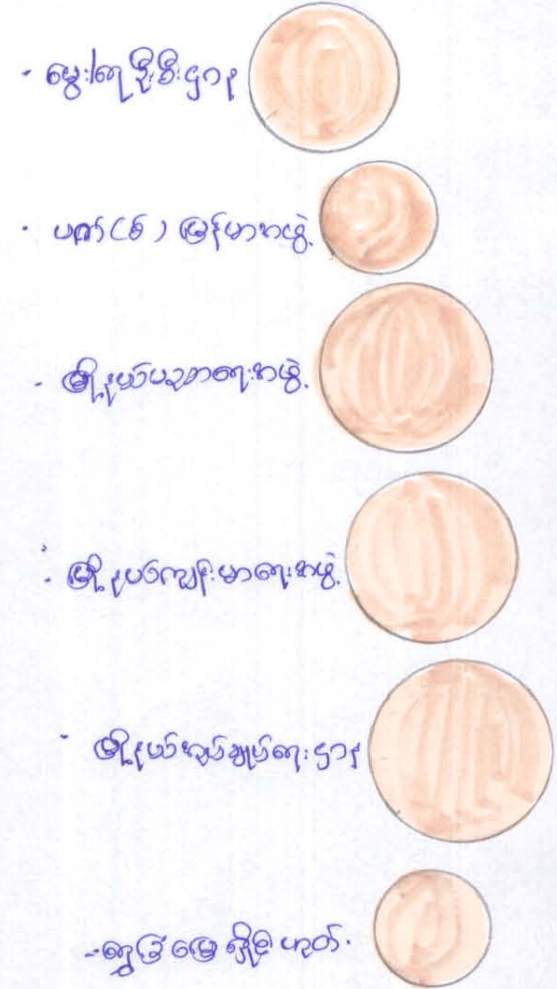 - မွေး/ရေ ဦးစီးဌာန
- ပတ် (စ်) မြန်မာအဖွဲ့
- မြို့နယ်ပညာရေးအဖွဲ့
- မြို့နယ်ကျန်းမာရေးအဖွဲ့
- မြို့နယ်အုပ်ချုပ်ရေးဌာန
- ရွှေ မြေ